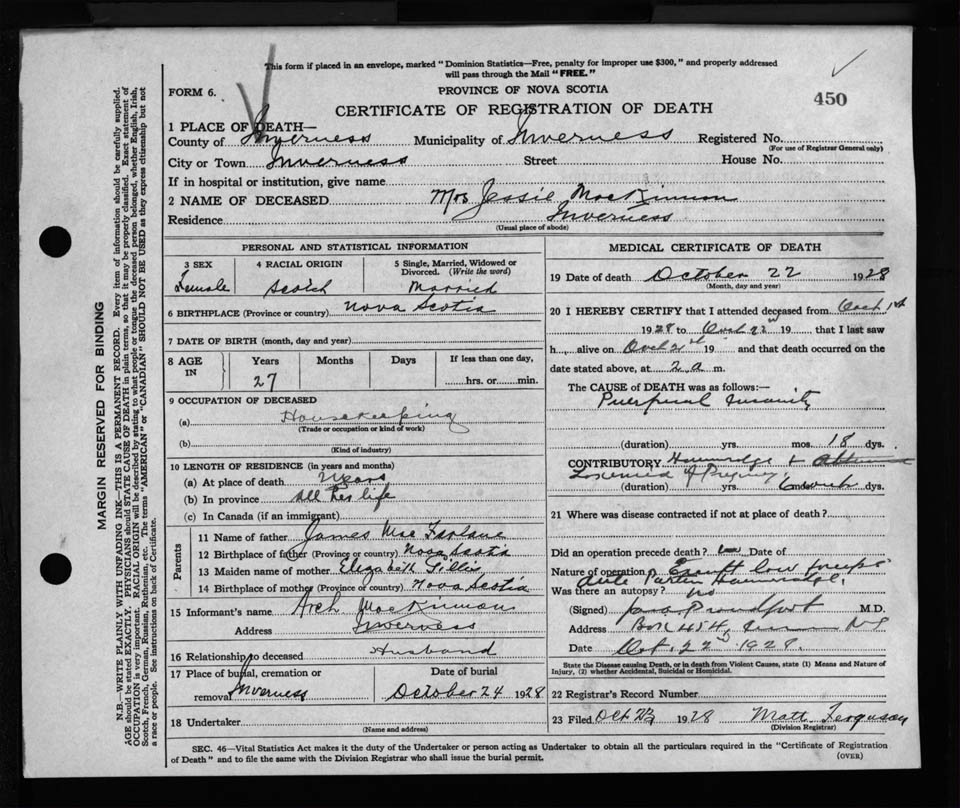 This form if placed in an envelope, marked "Dominion Statistics—Free, penalty for improper use $300," and properly addressed
will pass through the Mail "FREE."
FORM 6.
PROVINCE OF NOVA SCOTIA
450
CERTIFICATE OF REGISTRATION OF DEATH
1 PLACE OF DEATH—
County of Inverness Municipality of Inverness Registered No.
(For use of Registrar General only)
City or Town Inverness Street House No.
If in hospital or institution, give name
2 NAME OF DECEASED Mrs Jessie MacKinnon
Residence Inverness
(Usual place of abode)
PERSONAL AND STATISTICAL INFORMATION
3 SEX 4 RACIAL ORIGIN 5 Single, Married, Widowed or
Divorced. (Write the word)
Female Scotch Married
6 BIRTHPLACE (Province or country) Nova Scotia
7 DATE OF BIRTH (month, day and year)
8 AGE IN Years Months Days If less than one day,
27 hrs. or min.
9 OCCUPATION OF DECEASED
(a) Housekeeping
(Trade or occupation or kind of work)
(b)
(Kind of industry)
10 LENGTH OF RESIDENCE (in years and months)
(a) At place of death years
(b) In province all her life
(c) In Canada (if an immigrant)
Parents
11 Name of father James Mac Farlane
12 Birthplace of father (Province or country) Nova Scotia
13 Maiden name of mother Elizabeth Gillis
14 Birthplace of mother (Province or country) Nova Scotia
15 Informant's name Arch MacKinnon
Address Inverness
16 Relationship to deceased Husband
17 Place of burial, cremation or Date of burial
removal Inverness October 24 1928
18 Undertaker
(Name and address)
MEDICAL CERTIFICATE OF DEATH
19 Date of death October 22 1928
(Month, day and year)
20 I HEREBY CERTIFY that I attended deceased from Oct 1st
1928 to Oct 22 19 that I last saw
h alive on Oct 21st 19 and that death occurred on the
date stated above, at 2 a m.
The CAUSE of DEATH was as follows:—
Puerperal Insanity
(duration) yrs. mos. 18 dys.
CONTRIBUTORY
Toxemia of Pregnancy
(duration) yrs. mos. dys.
21 Where was disease contracted if not at place of death?
Did an operation precede death? Date of
Nature of operation low forceps
Ante Partum
Was there an autopsy? no
(Signed) Proudfoot M.D.
Address Box 454 NS
Date Oct. 22 1928.
State the Disease causing Death, or in death from Violent Causes, state (1) Means and Nature of
Injury, (2) whether Accidental, Suicidal or Homicidal.
22 Registrar's Record Number
23 Filed Oct 1928 Matt Ferguson
(Division Registrar)
SEC. 46—Vital Statistics Act makes it the duty of the Undertaker or person acting as Undertaker to obtain all the particulars required in the "Certificate of Registration
of Death" and to file the same with the Division Registrar who shall issue the burial permit.
(OVER)
MARGIN RESERVED FOR BINDING
N.B.—WRITE PLAINLY WITH UNFADING INK—THIS IS A PERMANENT RECORD. Every item of information should be carefully supplied.
AGE should be stated EXACTLY. PHYSICIANS should STATE CAUSE OF DEATH in plain terms, so that it may be properly classified. Exact statement of
OCCUPATION is very important. RACIAL ORIGIN will be described by stating to what people or tongue the deceased person belonged, whether English, Irish,
Scotch, French, German, Russian, Ruthenian, etc. The terms "AMERICAN" or "CANADIAN" SHOULD NOT BE USED as they express citizenship but not
a race or people. See instructions on back of Certificate.